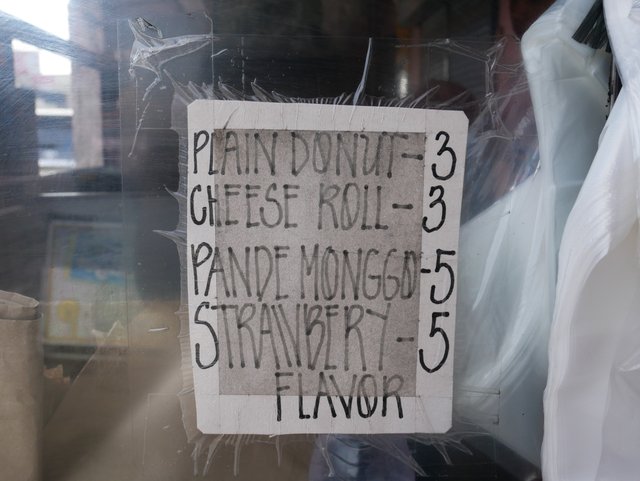 PLAIN DONUT-3
CHEESE ROLL-3
PANDE MONGGO-5
STRAWBERY-5
FLAVOR